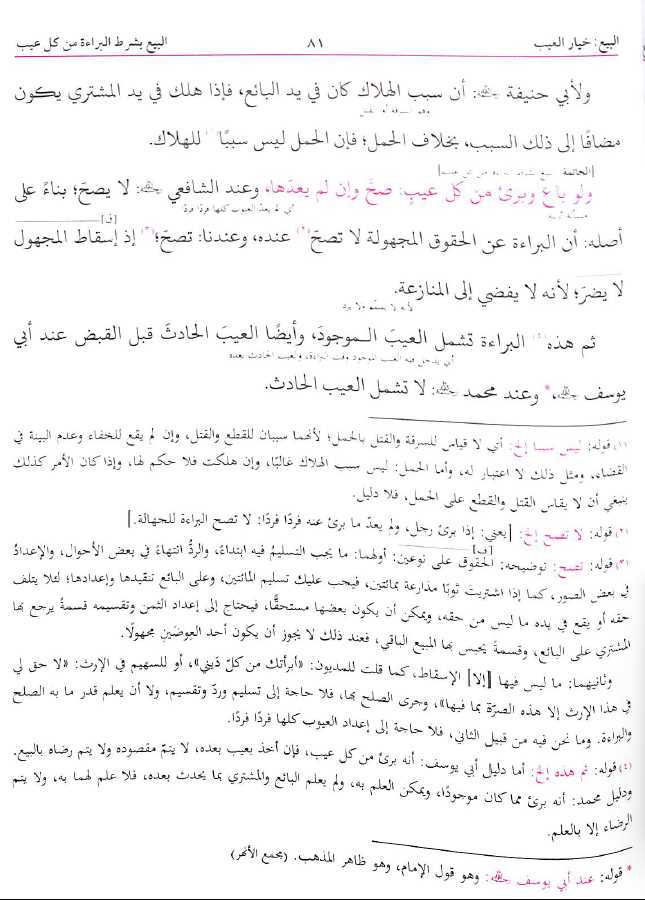 البيع: خيار العيب ٨١ البيع بشرط البراءة من كل عيب
ولأبي حنيفة رحمه الله: أن سبب الهلاك كان في يد البائع، فإذا هلك في يد المشتري يكون
مضافًا إلى ذلك السبب، بخلاف الحمل؛ فإن الحمل ليس سببًا(١) للهلاك.
ولو باع وبرئ من كل عيبٍ: صحّ وإن لم يعدّها، وعند الشافعي رحمه الله: لا يصحّ؛ بناءً على
أي لم يعدّ العيوب كلها فردًا فردًا
أصله: أن البراءة عن الحقوق المجهولة لا تصحّ(٢) عنده، وعندنا: تصحّ؛(٣) إذ إسقاط المجهول
لا يضرّ؛ لأنه لا يفضي إلى المنازعة.
ثم هذه(٤) البراءة تشمل العيبَ الـموجودَ، وأيضًا العيبَ الحادثَ قبل القبض عند أبي
يوسف رحمه الله،* وعند محمد رحمه الله: لا تشمل العيب الحادث.
(١) قوله: ليس سببا إلخ: أي لا قياس للسرقة والقتل بالحمل؛ لأنهما سببان للقطع والقتل، وإن لم يقع للخفاء وعدم البينة في
القضاء، ومثل ذلك لا اعتبار له، وأما الحمل: ليس سبب الهلاك غالبًا، وإن هلكت فلا حكم لها، وإذا كان الأمر كذلك
ينبغي أن لا يقاس القتل والقطع على الحمل، فلا دليل.
(٢) قوله: لا تصح إلخ: [يعني: إذا برئ رجل، ولم يعدّ ما برئ عنه فردًا فردًا: لا تصح البراءة للجهالة.]
(٣) قوله: تصح: توضيحه: الحقوق على نوعين: أولهما: ما يجب التسليمُ فيه ابتداءً، والردُّ انتهاءً في بعض الأحوال، والإعدادُ
في بعض الصور، كما إذا اشتريت ثوبًا مذارعة بمائتين، فيجب عليك تسليم المائتين، وعلى البائع تنقيدها وإعدادها؛ لئلا يتلف
حقه أو يقع في يده ما ليس من حقه، ويمكن أن يكون بعضها مستحقًّا، فيحتاج إلى إعداد الثمن وتقسيمه قسمةً يرجع بها
المشتري على البائع، وقسمةً يحبس بها المبيع الباقي، فعند ذلك لا يجوز أن يكون أحد العِوضَين مجهولًا.
وثانيهما: ما ليس فيها [إلا] الإسقاط، كما قلت للمديون: «أبرأتك من كلّ دَيني»، أو للسهيم في الإرث: «لا حق لي
في هذا الإرث إلا هذه الصرّة بما فيها»، وجرى الصلح بها، فلا حاجة إلى تسليم وردّ وتقسيم، ولا أن يعلم قدر ما به الصلح
والبراءة. وما نحن فيه من قبيل الثاني، فلا حاجة إلى إعداد العيوب كلها فردًا فردًا.
(٤) قوله: ثم هذه إلخ: أما دليل أبي يوسف: أنه برئ من كل عيب، فإن أخذ بعيب بعده، لا يتمّ مقصوده ولا يتم رضاه بالبيع.
ودليل محمد: أنه برئ مما كان موجودًا، ويمكن العلم به، ولم يعلم البائع والمشتري بما يحدث بعده، فلا علم لهما به، ولا يتم
الرضاء إلا بالعلم.
* قوله: عند أبي يوسف رحمه الله: وهو قول الإمام، وهو ظاهر المذهب. (مجمع الأنهر)